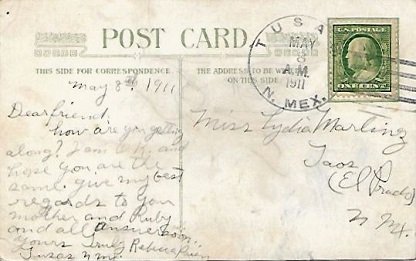 POST CARD
THIS SIDE FOR CORRESPONDENCE
THE ADDRESS TO BE WRITTEN
ON THIS SIDE
TUSAS
MAY
8
A.M.
1911
N. MEX.
U.S. POSTAGE
ONE CENT
May 8th, 1911
Dear friend,
how are you getting
along? I am O.K. and
hope you are the
same. give my best
regards to you
mother and Ruby
and all answer soon
yours Truly Rebecca
Tusas N.M.
Miss Lydia Marting
Taos
(El Prado)
N. Mex.